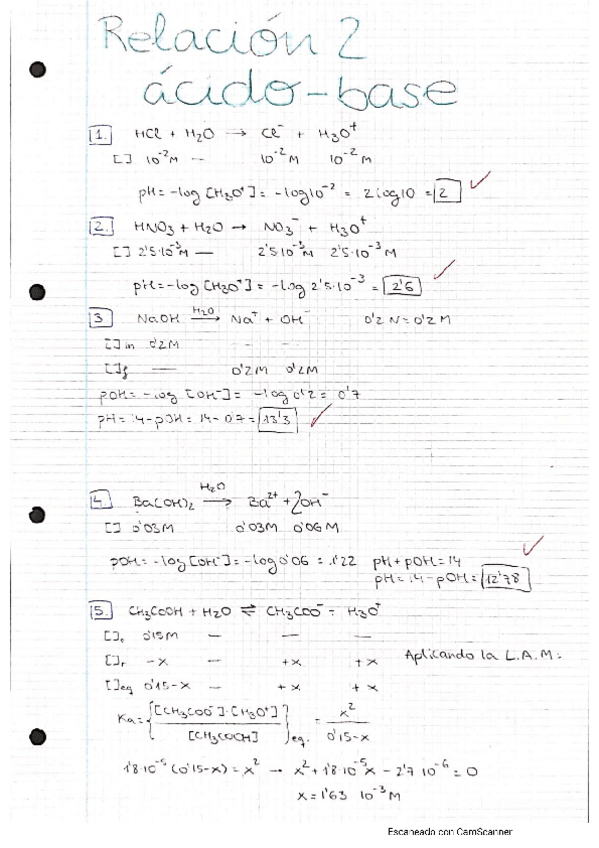 Relación 2
ácido-base
1. HCl + H₂O → Cl⁻ + H₃O⁺
[] 10⁻²M — 10⁻²M 10⁻²M
pH = -log [H₃O⁺] = -log10⁻² = 2log10 = 2 ✓
2. HNO₃ + H₂O → NO₃⁻ + H₃O⁺
[] 2'5·10⁻³M — 2'5·10⁻³M 2'5·10⁻³M
pH = -log [H₃O⁺] = -log 2'5·10⁻³ = 2'6 ✓
3 NaOH →(H₂O) Na⁺ + OH⁻ 0'2 N = 0'2 M
[]in 0'2M - -
[]f — 0'2M 0'2M
pOH = -log [OH⁻] = -log 0'2 = 0'7
pH = 14 - pOH = 14 - 0'7 = 13'3 ✓
4. Ba(OH)₂ →(H₂O) Ba²⁺ + 2OH⁻
[] 0'03M 0'03M 0'06M
pOH = -log [OH⁻] = -log 0'06 = 1'22 pH + pOH = 14 ✓
pH = 14 - pOH = 12'78
5. CH₃COOH + H₂O ⇌ CH₃COO⁻ + H₃O⁺
[]₀ 0'15M — — —
[]r -x — +x +x Aplicando la L.A.M:
[]eq 0'15-x — +x +x
Ka = {[CH₃COO⁻]·[H₃O⁺] / [CH₃COOH]}eq. = x² / 0'15-x
1'8·10⁻⁵ (0'15-x) = x² → x² + 1'8·10⁻⁵x - 2'7 10⁻⁶ = 0
x = 1'63 10⁻³ M
Escaneado con CamScanner